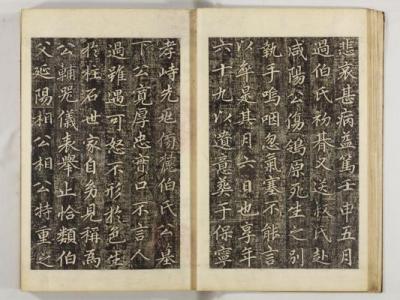 悲哀甚病益篤壬申五月
過伯氏初碁又送叔氏赴
咸陽公傷鴒原死生之別
執手嗚咽忽氣塞不能言
以卒是其月六日也享年
六十九以遺意葬于保寧
孝峙先迯伯氏公墓
下公寬厚忠實口不言人
過雖遇可怒不形於色生
於柱石世家自多見稱爲
公輔器儀表擧止恰類伯
父延陽相公相公持重之